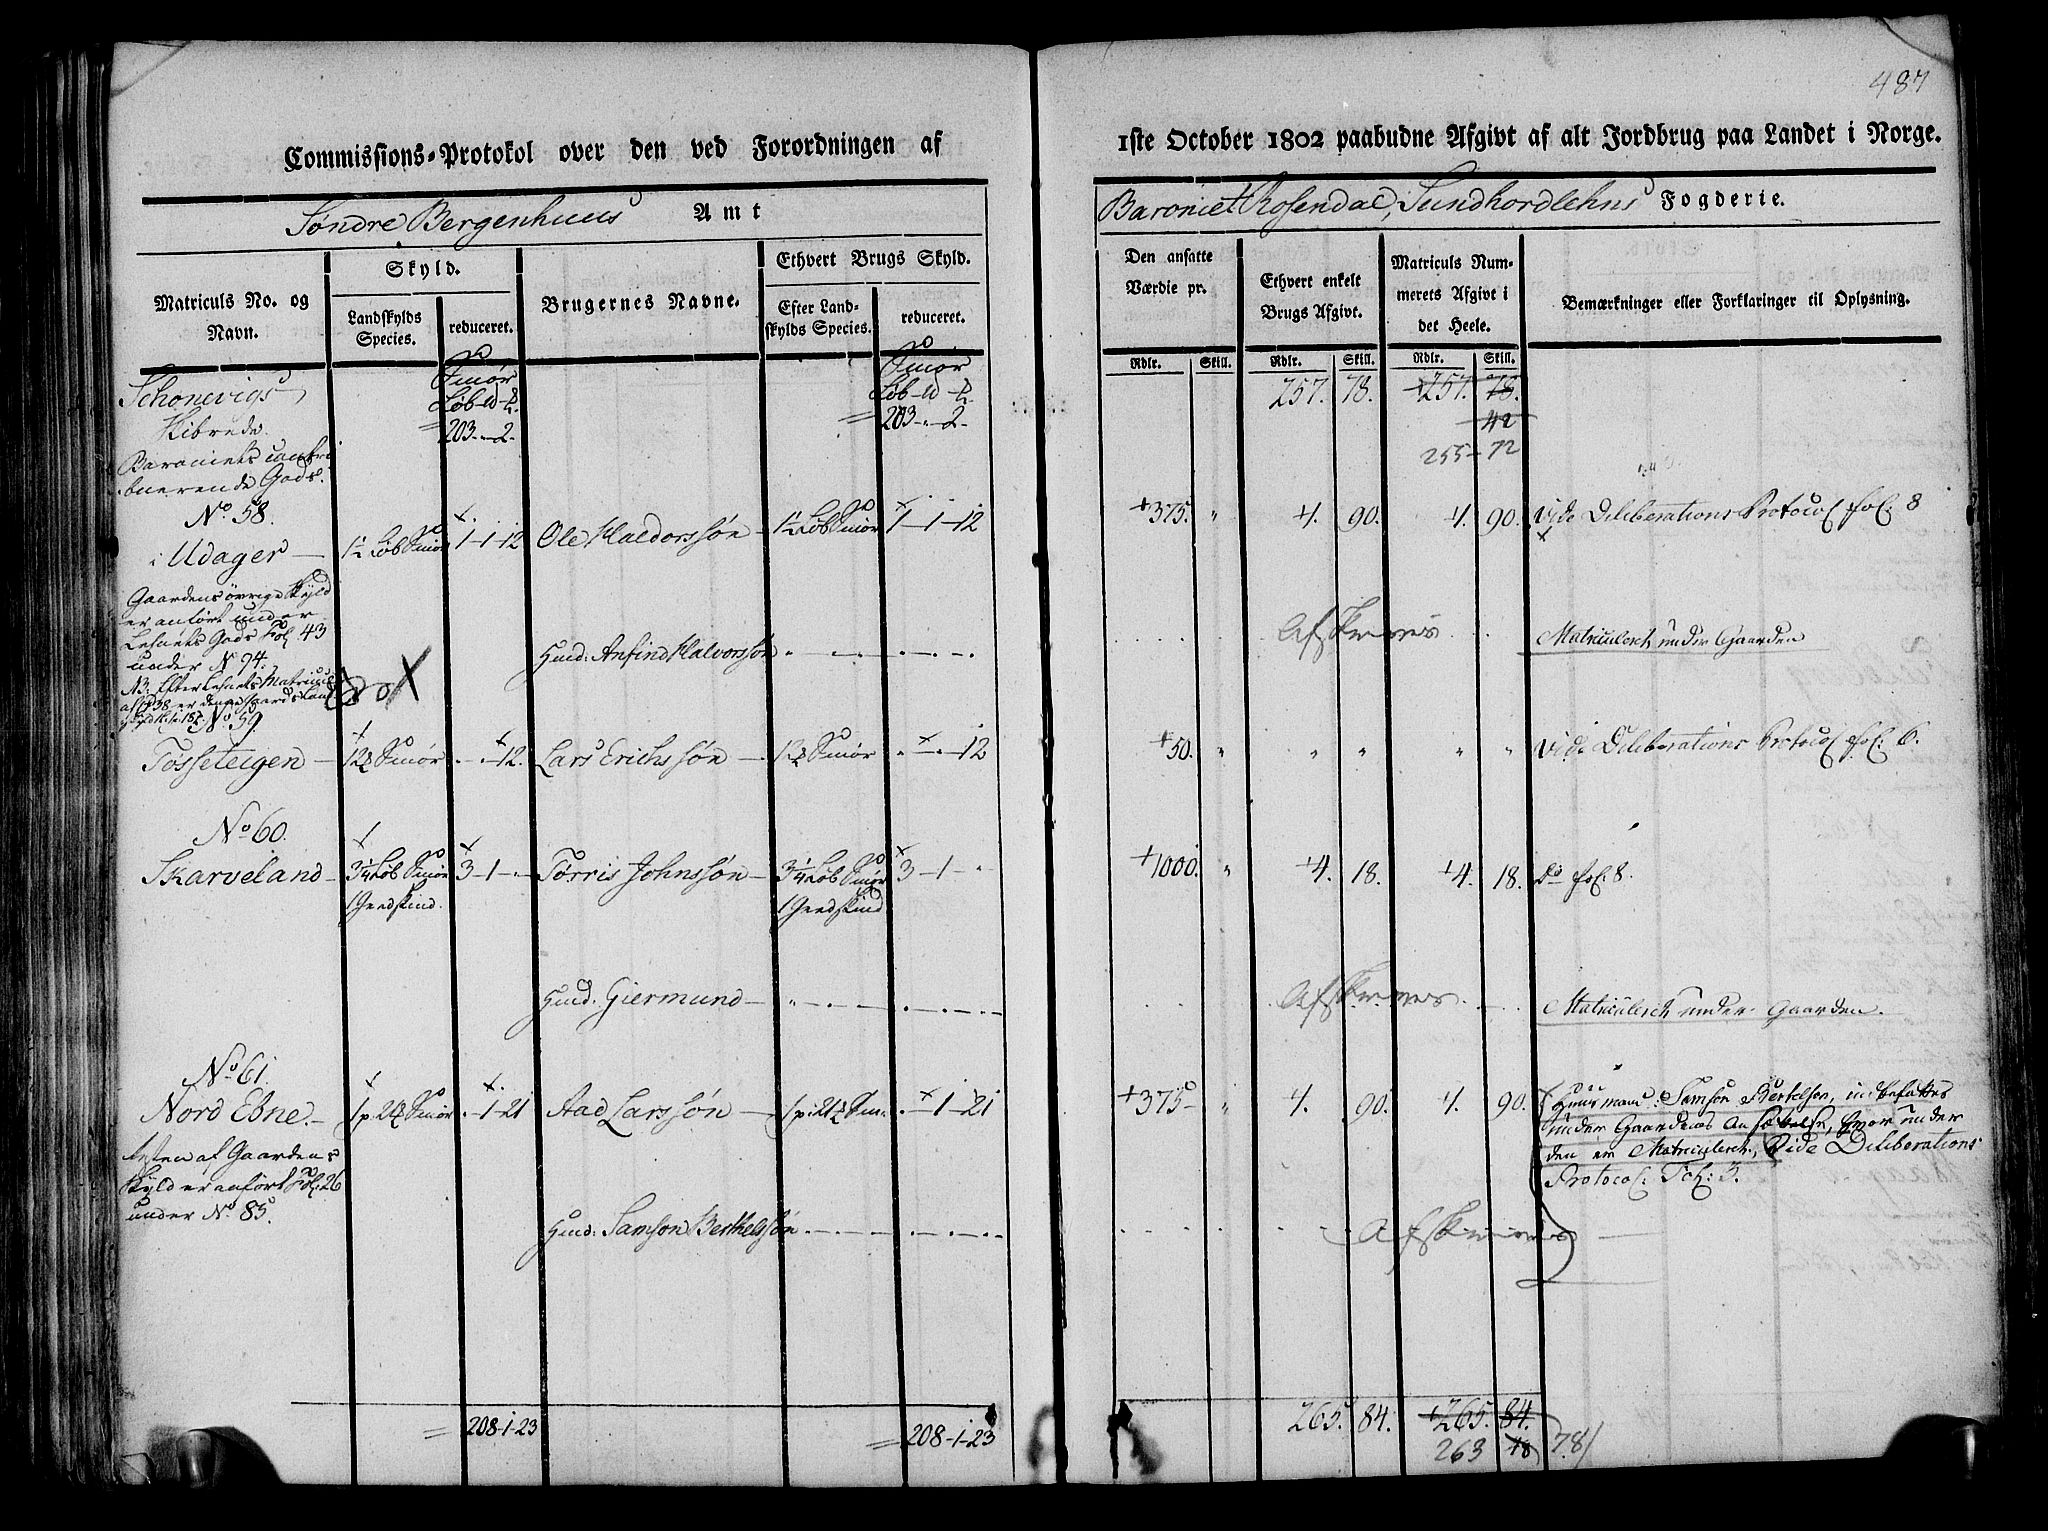 487
Commissions-Protokol over den ved Forordningen af
1ste October 1802 paabudne Afgivt af alt Jordbrug paa Landet i Norge.
Søndre Bergenhuus Amt
Baroniet Rosendal, Sundhordlehns Fogderie.
Matriculs No. og Navn.
Skyld.
Landskylds Species.
reduceret.
Brugernes Navne.
Ethvert Brugs Skyld.
Efter Landskylds Species.
reduceret.
Den ansatte Værdie pr.
Ethvert enkelt Brugs Afgivt.
Matriculs Nummerets Afgivt i det Heele.
Bemærkninger eller Forklaringer til Oplysning.
Rdlr. Skill. Rdlr. Skill. Rdlr. Skill.
Schonevigs Smør Smør 257. 78. 257. 78.
Skibrede. Løb Løb 42
203 - 2 203 - 2 255 - 72
Baroniets contri
buerende Gods.
No 58.
i Udager 1¼ Løb Smør 1-1-12 Ole Haldorssøn 1¼ Løb Smør 1-1-12 375. " 4. 90. 4. 90. Vide Deliberations Protocol fol. 8
Gaardens øvrige Skyld
er anført under
Lehnets Gods Fol 43
under No 94.
Huusd: Anfind Halvorssøn Afskrives Matriculeret under Gaarden
No 59.
Tosseteigen 12 Smør 12. Lars Erichssøn Smør 12 50. " " " " " Vide Deliberations Protocol fol. 6.
No 60.
Skarveland 3¼ Løb Smør 3-1- Torris Johnssøn 3¼ Løb Smør 3-1- 1000. " 4. 18. 4. 18. Do fol. 8.
1 Geedskind. 1 Geedskind
Huusd: Giermund Afskrives Matriculeret under Gaarden.
No 61.
Nord Ebne. Smør -1-21 Aad Larssøn -1-21 375 " 4. 90. 4. 90. Huusmand: Samson Bertelsen, indbefattes
under Gaardens Ansættelse, hvor under
den er Matriculeret, Vide Deliberations
Protocol Fol: 3.
Resten af Gaardens
Skyld er anført Fol. 26
under No 85.
Huusd: Samson Berthelssøn Afskrives
208-1-23 208-1-23 265. 84. 265. 84.
263 78